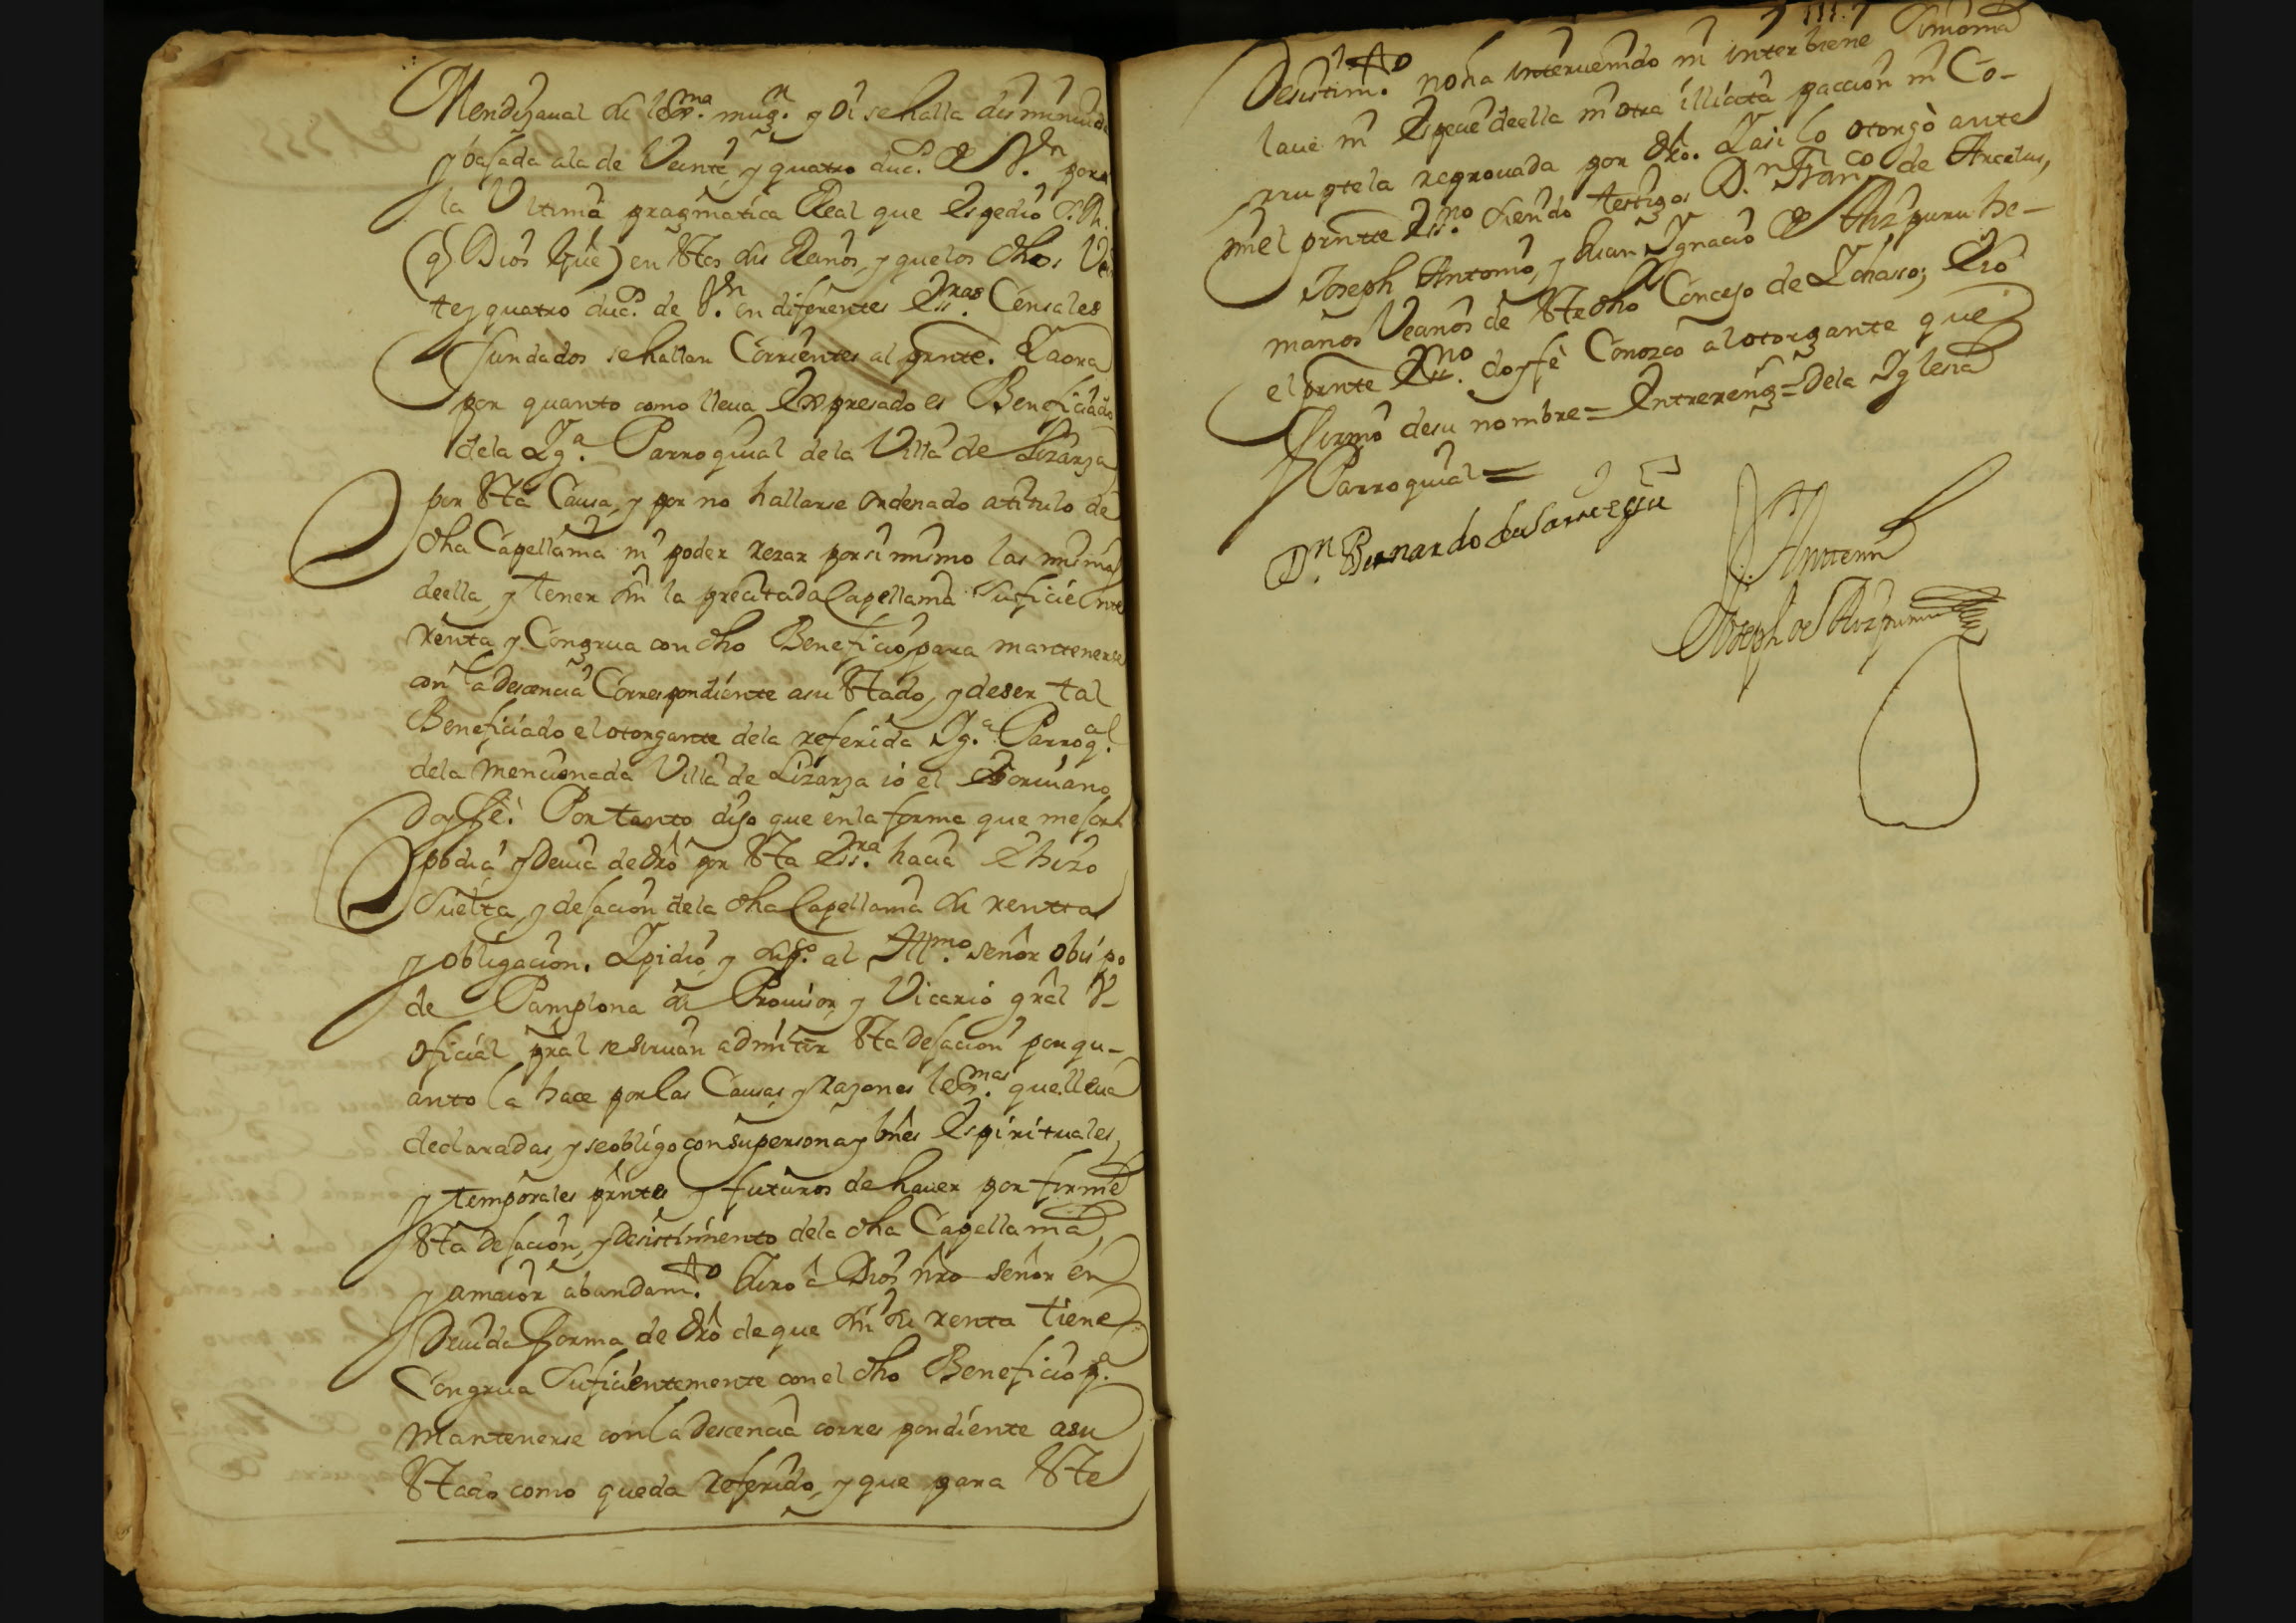 Mendizaual su lexma. mugr. y oi se halla disminuida
y bajada a la de Veinte y quatro duc.s de Vn. por
la Vltima pragmatica Real que espedio S. M.
(q Dios gue) en estos sus Reinos, y que los dhos Vein
te y quatro duc.s de Vn. en diferentes essras. Censales
fundados se hallan Corrientes al prnte. Y aora
por quanto como lleua expresado es Beneficiado
dela Yga. Parroquial dela Villa de Lizarza
por esta Causa, y por no hallarse ordenado a titulo de
dha Capellania ni poder rezar por si mismo las misas
deella, y tener sin la precitada Capellania Suficiente
renta y Congrua con dho Beneficio, para mantenerse
con la descencia Correspondiente asu estado, y deser tal
Beneficiado el otorgante dela referida Yg.a Parroq.al
dela mencionada Villa de Lizarza io el Escriuano
doy fe: Por tanto dijo que en la forma que mejor
podia y deuia de dro por esta essra. hacia e hizo
Suelta, y dejacion dela dha Capellania su renta
y obligacion. Y pidio y supco. al Yllmo. señor obispo
de Pamplona su Prouisor, y Vicario gral V
oficial pral se siruan admitir esta dejacion por qu-
anto la hace por las Causas y razones lexmas. que lleua
declaradas, y se obligo con su persona y bnes espirituales,
y temporales prntes y futuros de hauer por firme
esta dejacion, y desistimiento dela dha Capellania,
y amaior abundam.to Juro a Dios nro señor en
deuida forma de dro de que sin su renta tiene
Congrua Suficientemente con el dho Beneficio p.a
mantenerse con la descencia corres pondiente asu
estado como queda referido, y que para este
Desistim.to no ha interuenido ni interbiene Simonia
laue ni especie deella ni otra illicita paccion ni Co-
rruptela reprouada por dro. Y asi lo otorgò ante
mi el prnte essno. siendo testigos D.n Fran.co de Arcelus,
Joseph Antonio, y Juan Ygnacio de Aizpuru he-
manos Vecinos de este dho Concejo de Ychasso; e io
el prnte essno. doy fè Conozco al otorgante que
firmò de su nombre = Entrereng = Dela Yglesia
Parroquial =
Dn. Bernardo de Lasarte
Antemi
Joseph de Aizpuru